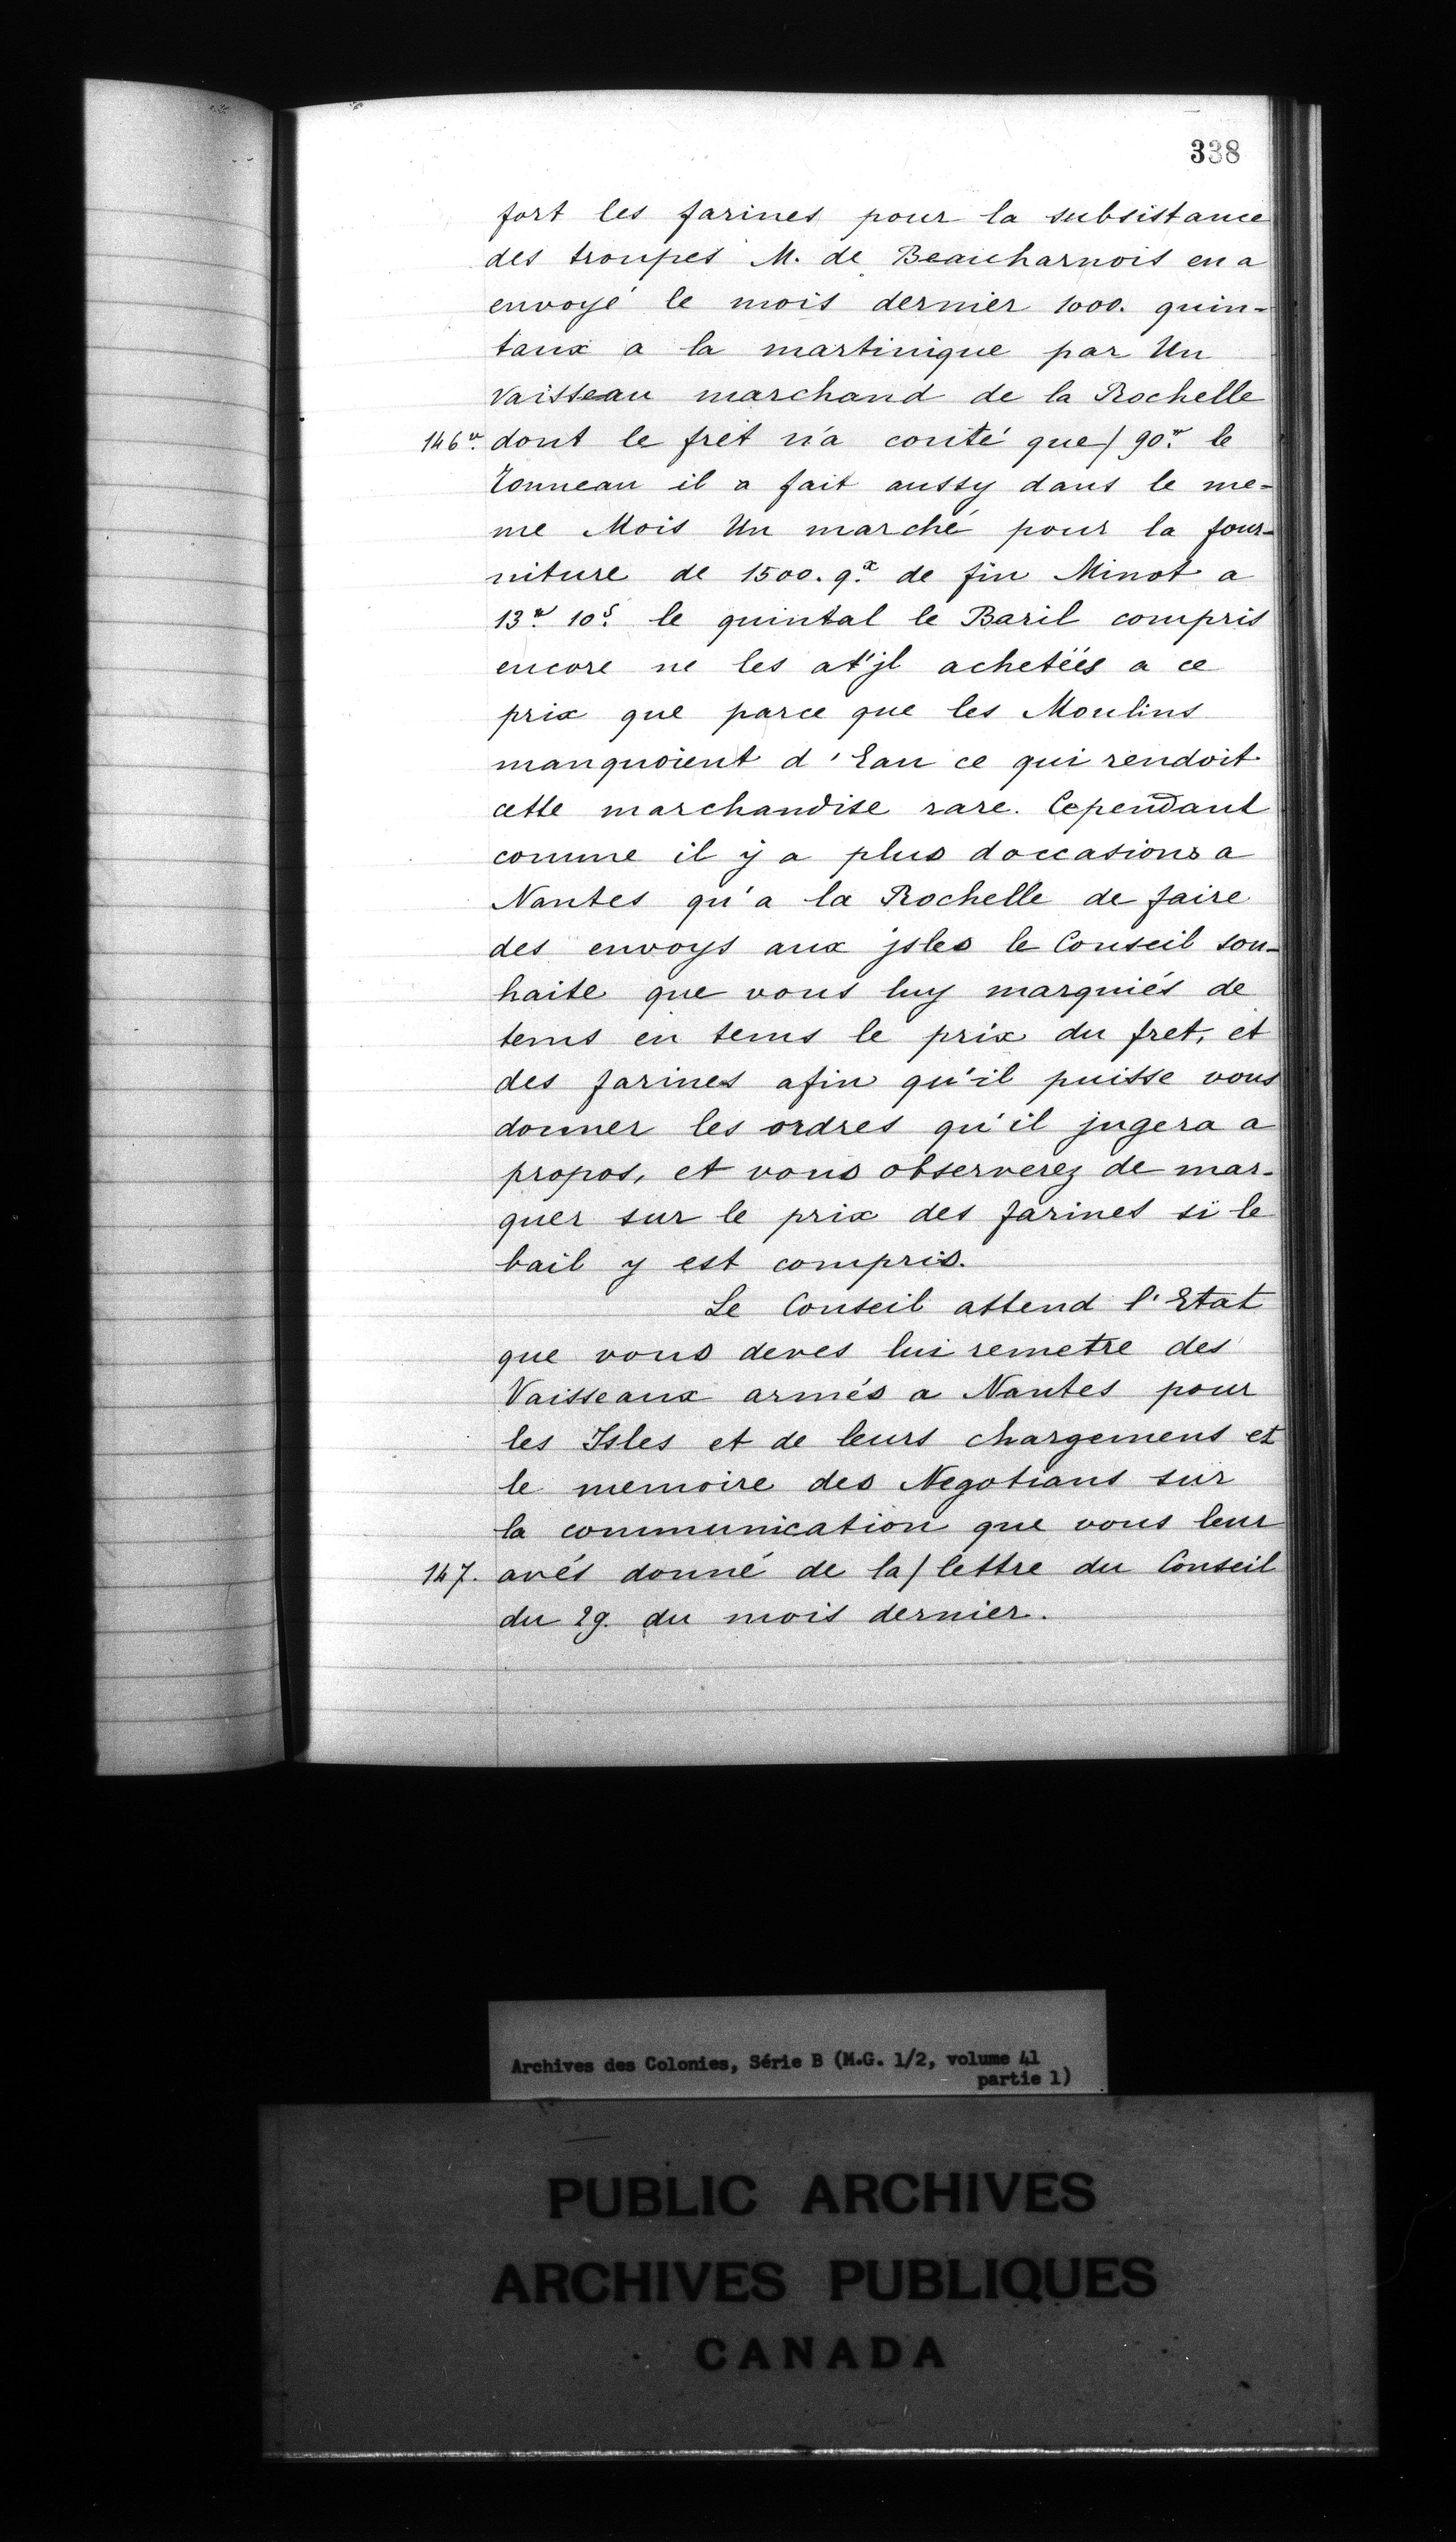 338
fort les farines pour la subsistance
des troupes M. de Beauharnois en a
envoyé le mois dernier 1000. quin-
taux a la martinique par Un
vaisseau marchand de la Rochelle
146v. dont le fret n'a couté que/ 90.# le
Tonneau il a fait aussy dans le me-
me Mois Un marché pour la four-
niture de 1500. q.x de fin Minot a
13.# 10.s le quintal le Baril compris
encore ne les at'jl achetéés a ce
prix que parce que les Moulins
manquoient d'Eau ce qui rendoit
cette marchandise rare. Cependant
comme il y a plus doccasions a
Nantes qu'a la Rochelle de faire
des envoys aux jsles le Conseil sou-
haite que vous luy marquiés de
tems en tems le prix du fret, et
des farines afin qu'il puisse vous
donner les ordres qu'il jugera a
propos, et vous observerez de mar-
quer sur le prix des farines si le
bail y est compris.
Le Conseil attend l'Etat
que vous deves lui remetre des
Vaisseaux armés a Nantes pour
les Isles et de leurs chargemens et
le memoire des Negotians sur
la communication que vous leur
147. avés donné de la/ lettre du Conseil
du 29. du mois dernier.
Archives des Colonies, Série B (M.G. 1/2, volume 41
partie 1)
PUBLIC ARCHIVES
ARCHIVES PUBLIQUES
CANADA